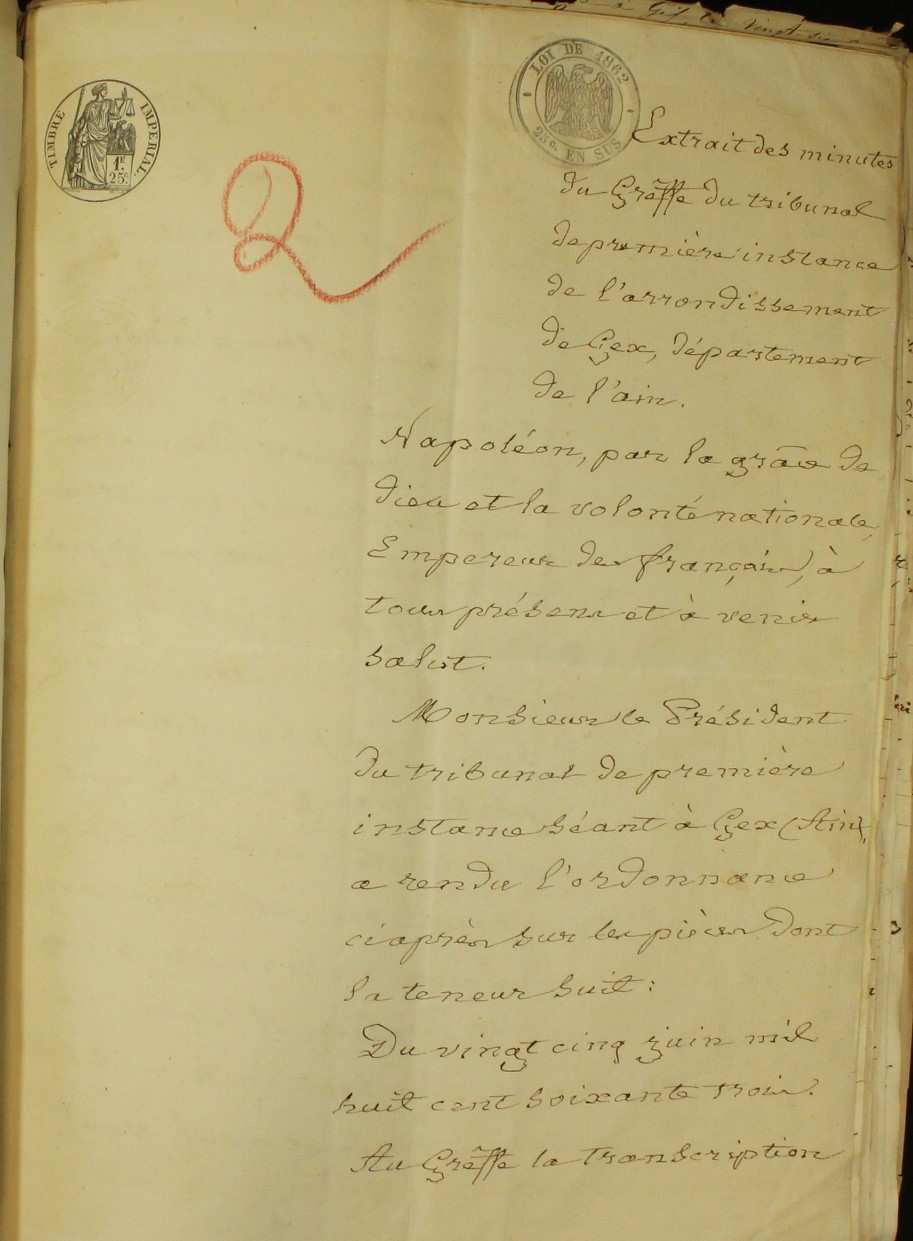 TIMBRE IMPERIAL.
1F.
25c.
LOI DE 1862
25c. EN SUS
2
Extrait des minutes
du Greffe du tribunal
de première instance
de l'arrondissement
de Gex, département
de l'ain.
Napoléon, par la grâce de
dieu et la volonté nationale,
Empereur des français, à
tous présens et à venir
salut.
Monsieur le Président
du tribunal de première
instance séant à Gex (Ain),
a rendu l'ordonnance
ci après sur les pièces dont
la teneur suit :
Du vingt cinq juin mil
huit cent soixante trois.
Au Greffe la transcription